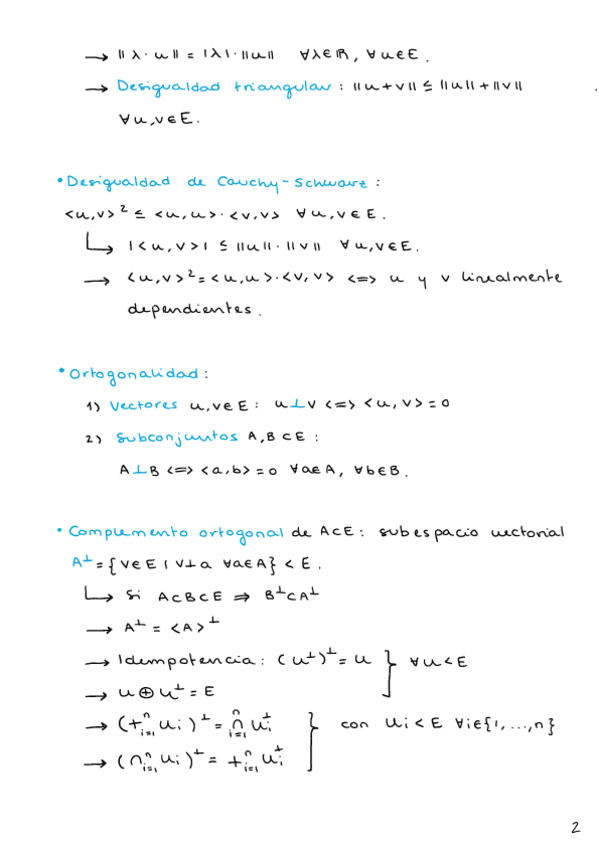 → ||λ·u|| = |λ|·||u|| ∀λ∈ℝ, ∀u∈E.
→ Desigualdad triangular: ||u+v|| ≤ ||u||+||v||
∀u,v∈E.
• Desigualdad de Cauchy-Schwarz:
<u,v>² ≤ <u,u>·<v,v> ∀u,v∈E.
↳ |<u,v>| ≤ ||u||·||v|| ∀u,v∈E.
→ <u,v>² = <u,u>·<v,v> <=> u y v linealmente
dependientes.
• Ortogonalidad:
1) Vectores u,v∈E: u⊥v <=> <u,v>=0
2) Subconjuntos A,B⊂E:
A⊥B <=> <a,b>=0 ∀a∈A, ∀b∈B.
• Complemento ortogonal de A⊂E: subespacio vectorial
A⊥ = {v∈E | v⊥a ∀a∈A} < E.
↳ Si A⊂B⊂E ⇒ B⊥⊂A⊥
→ A⊥ = <A>⊥
→ Idempotencia: (U⊥)⊥ = U } ∀U<E
→ U⊕U⊥ = E
→ (+ⁿᵢ₌₁ Uᵢ)⊥ = ∩ⁿᵢ₌₁ Uᵢ⊥ } con Uᵢ<E ∀i∈{1,...,n}
→ (∩ⁿᵢ₌₁ Uᵢ)⊥ = +ⁿᵢ₌₁ Uᵢ⊥
2